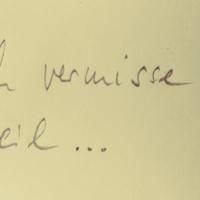 h vermisse
eil ...